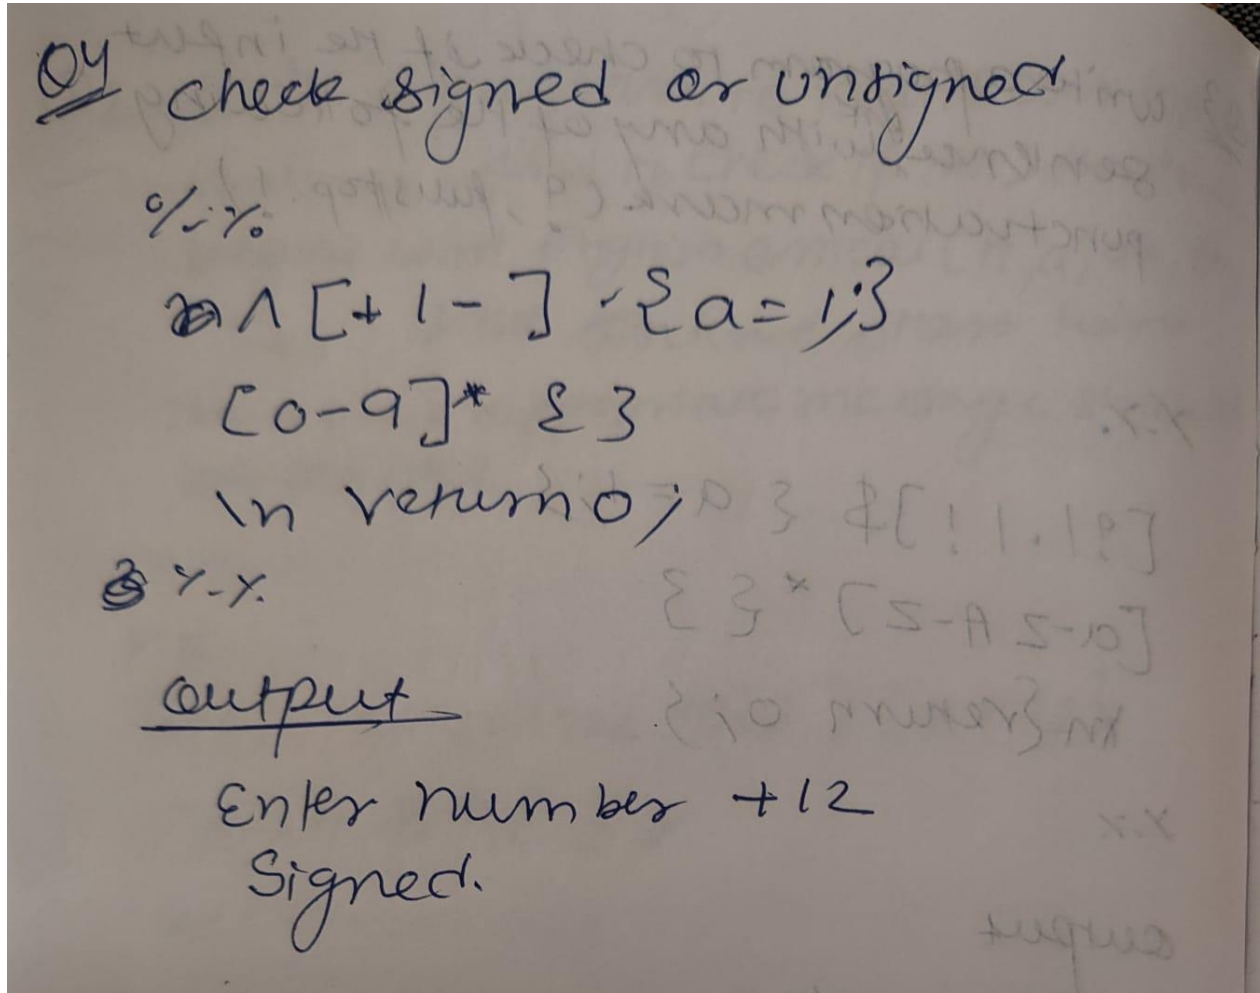 Q4 check signed or unsigned
%.%
^ [+ | - ] {a = 1;}
[0-9]* { }
\n return 0;
%.%
output
Enter number +12
Signed.